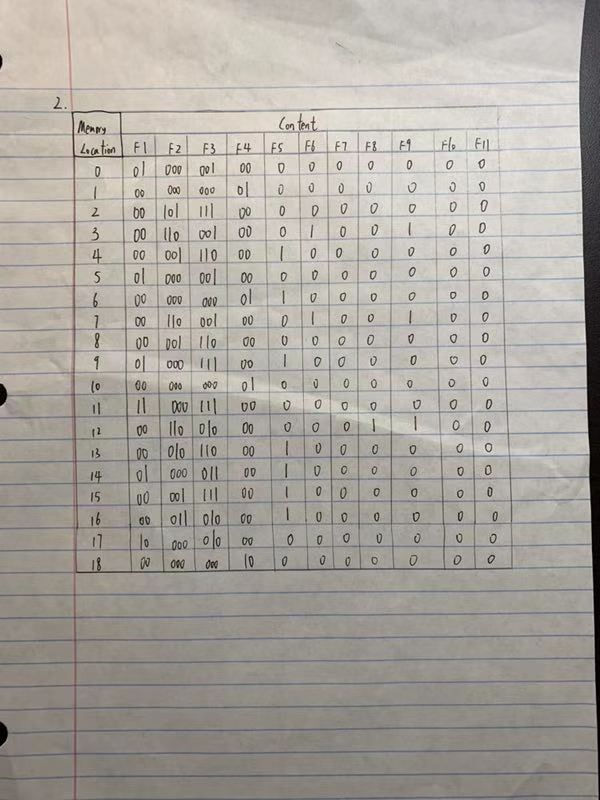 2.
Memory Location Content
F1 F2 F3 F4 F5 F6 F7 F8 F9 F10 F11
0 01 000 001 00 0 0 0 0 0 0 0
1 00 000 000 01 0 0 0 0 0 0 0
2 00 101 111 00 0 0 0 0 0 0 0
3 00 110 001 00 0 1 0 0 1 0 0
4 00 001 110 00 1 0 0 0 0 0 0
5 01 000 001 00 0 0 0 0 0 0 0
6 00 000 000 01 1 0 0 0 0 0 0
7 00 110 001 00 0 1 0 0 1 0 0
8 00 001 110 00 0 0 0 0 0 0 0
9 01 000 111 00 1 0 0 0 0 0 0
10 00 000 000 01 0 0 0 0 0 0 0
11 11 000 111 00 0 0 0 0 0 0 0
12 00 110 010 00 0 0 0 1 1 0 0
13 00 010 110 00 1 0 0 0 0 0 0
14 01 000 011 00 1 0 0 0 0 0 0
15 00 001 111 00 1 0 0 0 0 0 0
16 00 011 010 00 1 0 0 0 0 0 0
17 10 000 010 00 0 0 0 0 0 0 0
18 00 000 000 10 0 0 0 0 0 0 0